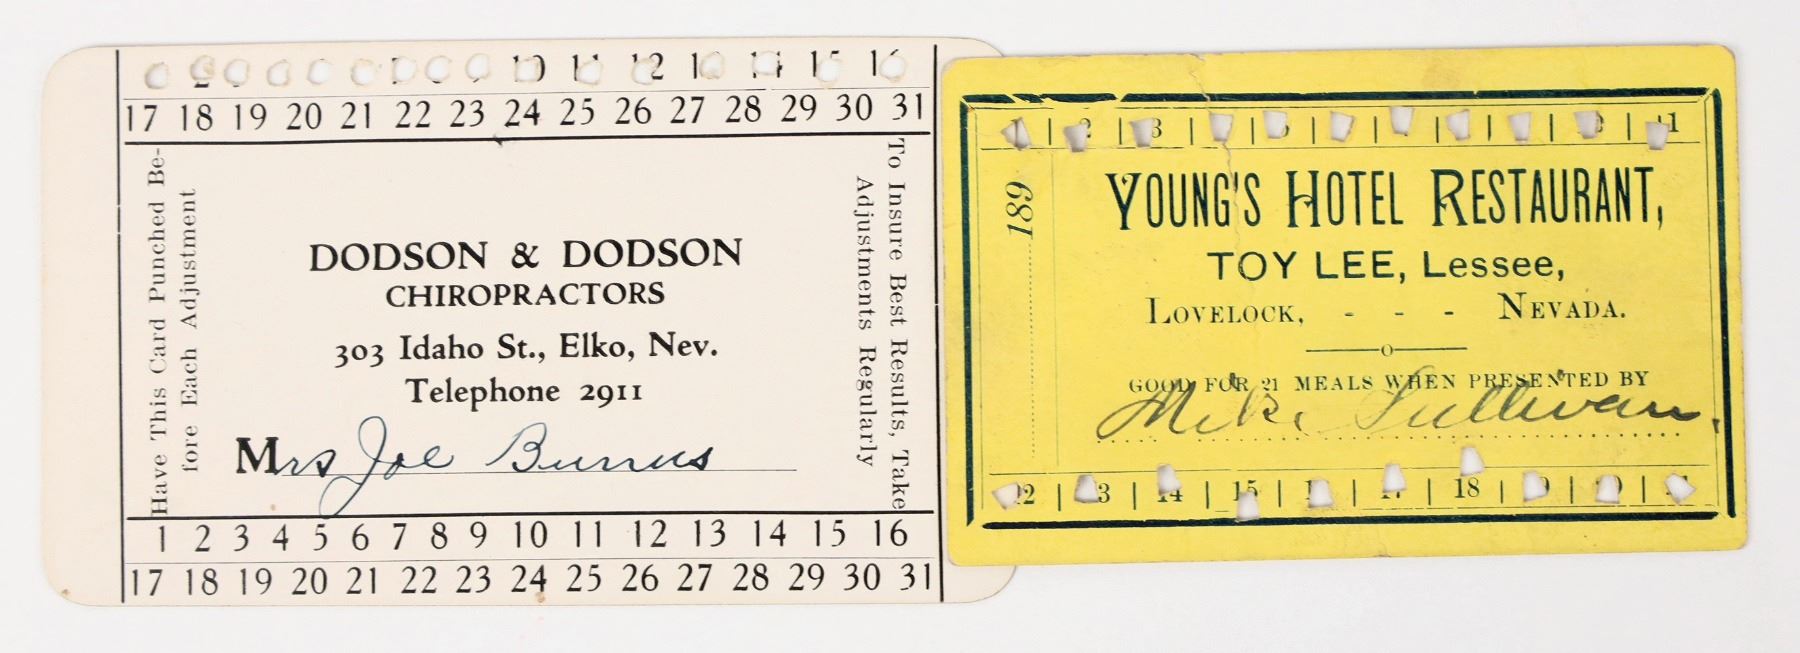 10 11 12 14 15 16
17 18 19 20 21 22 23 24 25 26 27 28 29 30 31
Have This Card Punched Be-
fore Each Adjustment
DODSON & DODSON
CHIROPRACTORS
303 Idaho St., Elko, Nev.
Telephone 2911
Mrs Joe Burrus
To Insure Best Results, Take
Adjustments Regularly
1 2 3 4 5 6 7 8 9 10 11 12 13 14 15 16
17 18 19 20 21 22 23 24 25 26 27 28 29 30 31
1 | 2 | 3 | | | | | | | | 11
189
YOUNG'S HOTEL RESTAURANT,
TOY LEE, Lessee,
LOVELOCK, - - - NEVADA.
GOOD FOR 21 MEALS WHEN PRESENTED BY
Mike Sullivan.
12 | 13 | 14 | 15 | | | 18 | 19 | |